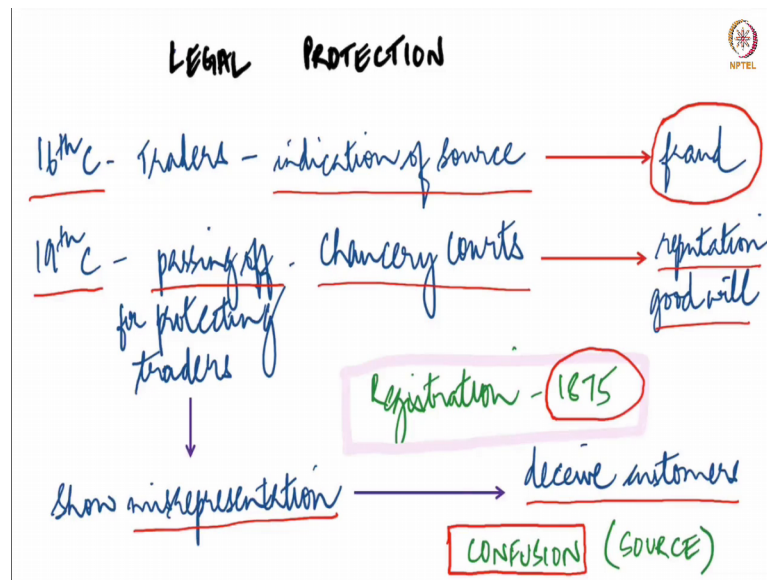 LEGAL PROTECTION
NPTEL
16th C - Traders - indication of source → fraud
19th C - passing off - Chancery Courts → reputation
for protecting goodwill
traders
Registration - 1875
Show misrepresentation → deceive customers
CONFUSION (SOURCE)